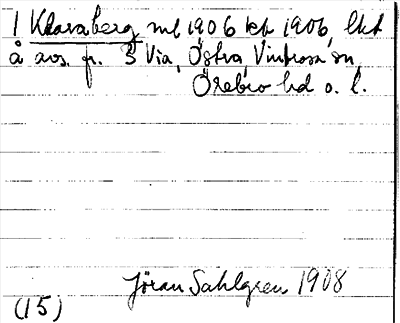 1 Klaraberg ml 1906 kt 1906, lht
å avs. fr. 3 Via, Östra, Vintrosa sn,
Örebro hd o. l.
Jöran Sahlgren 1908
(15)